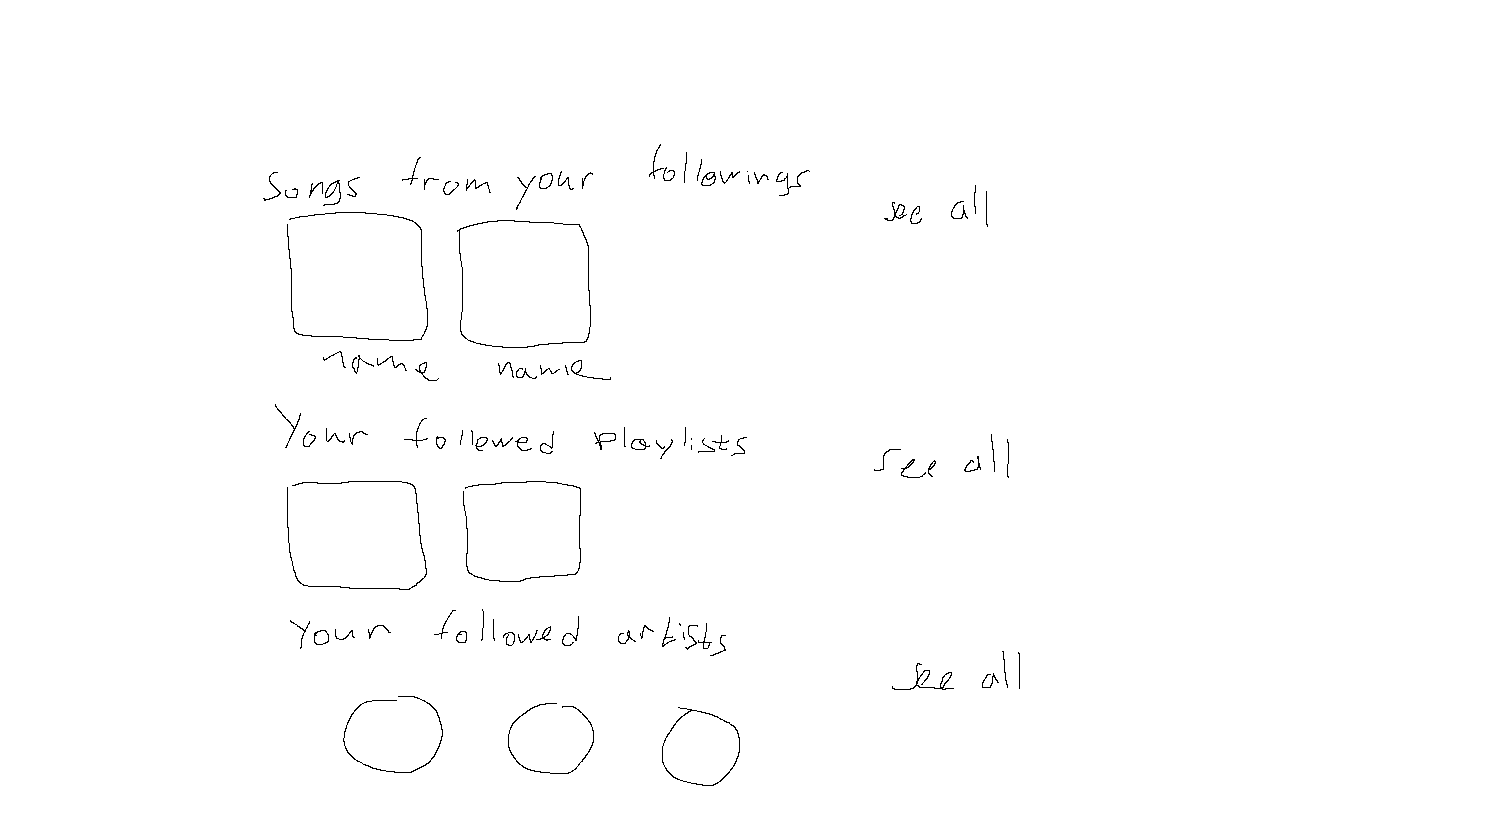 Songs from your followings
see all
name name
Your followed playlists
see all
Your followed artists
see all